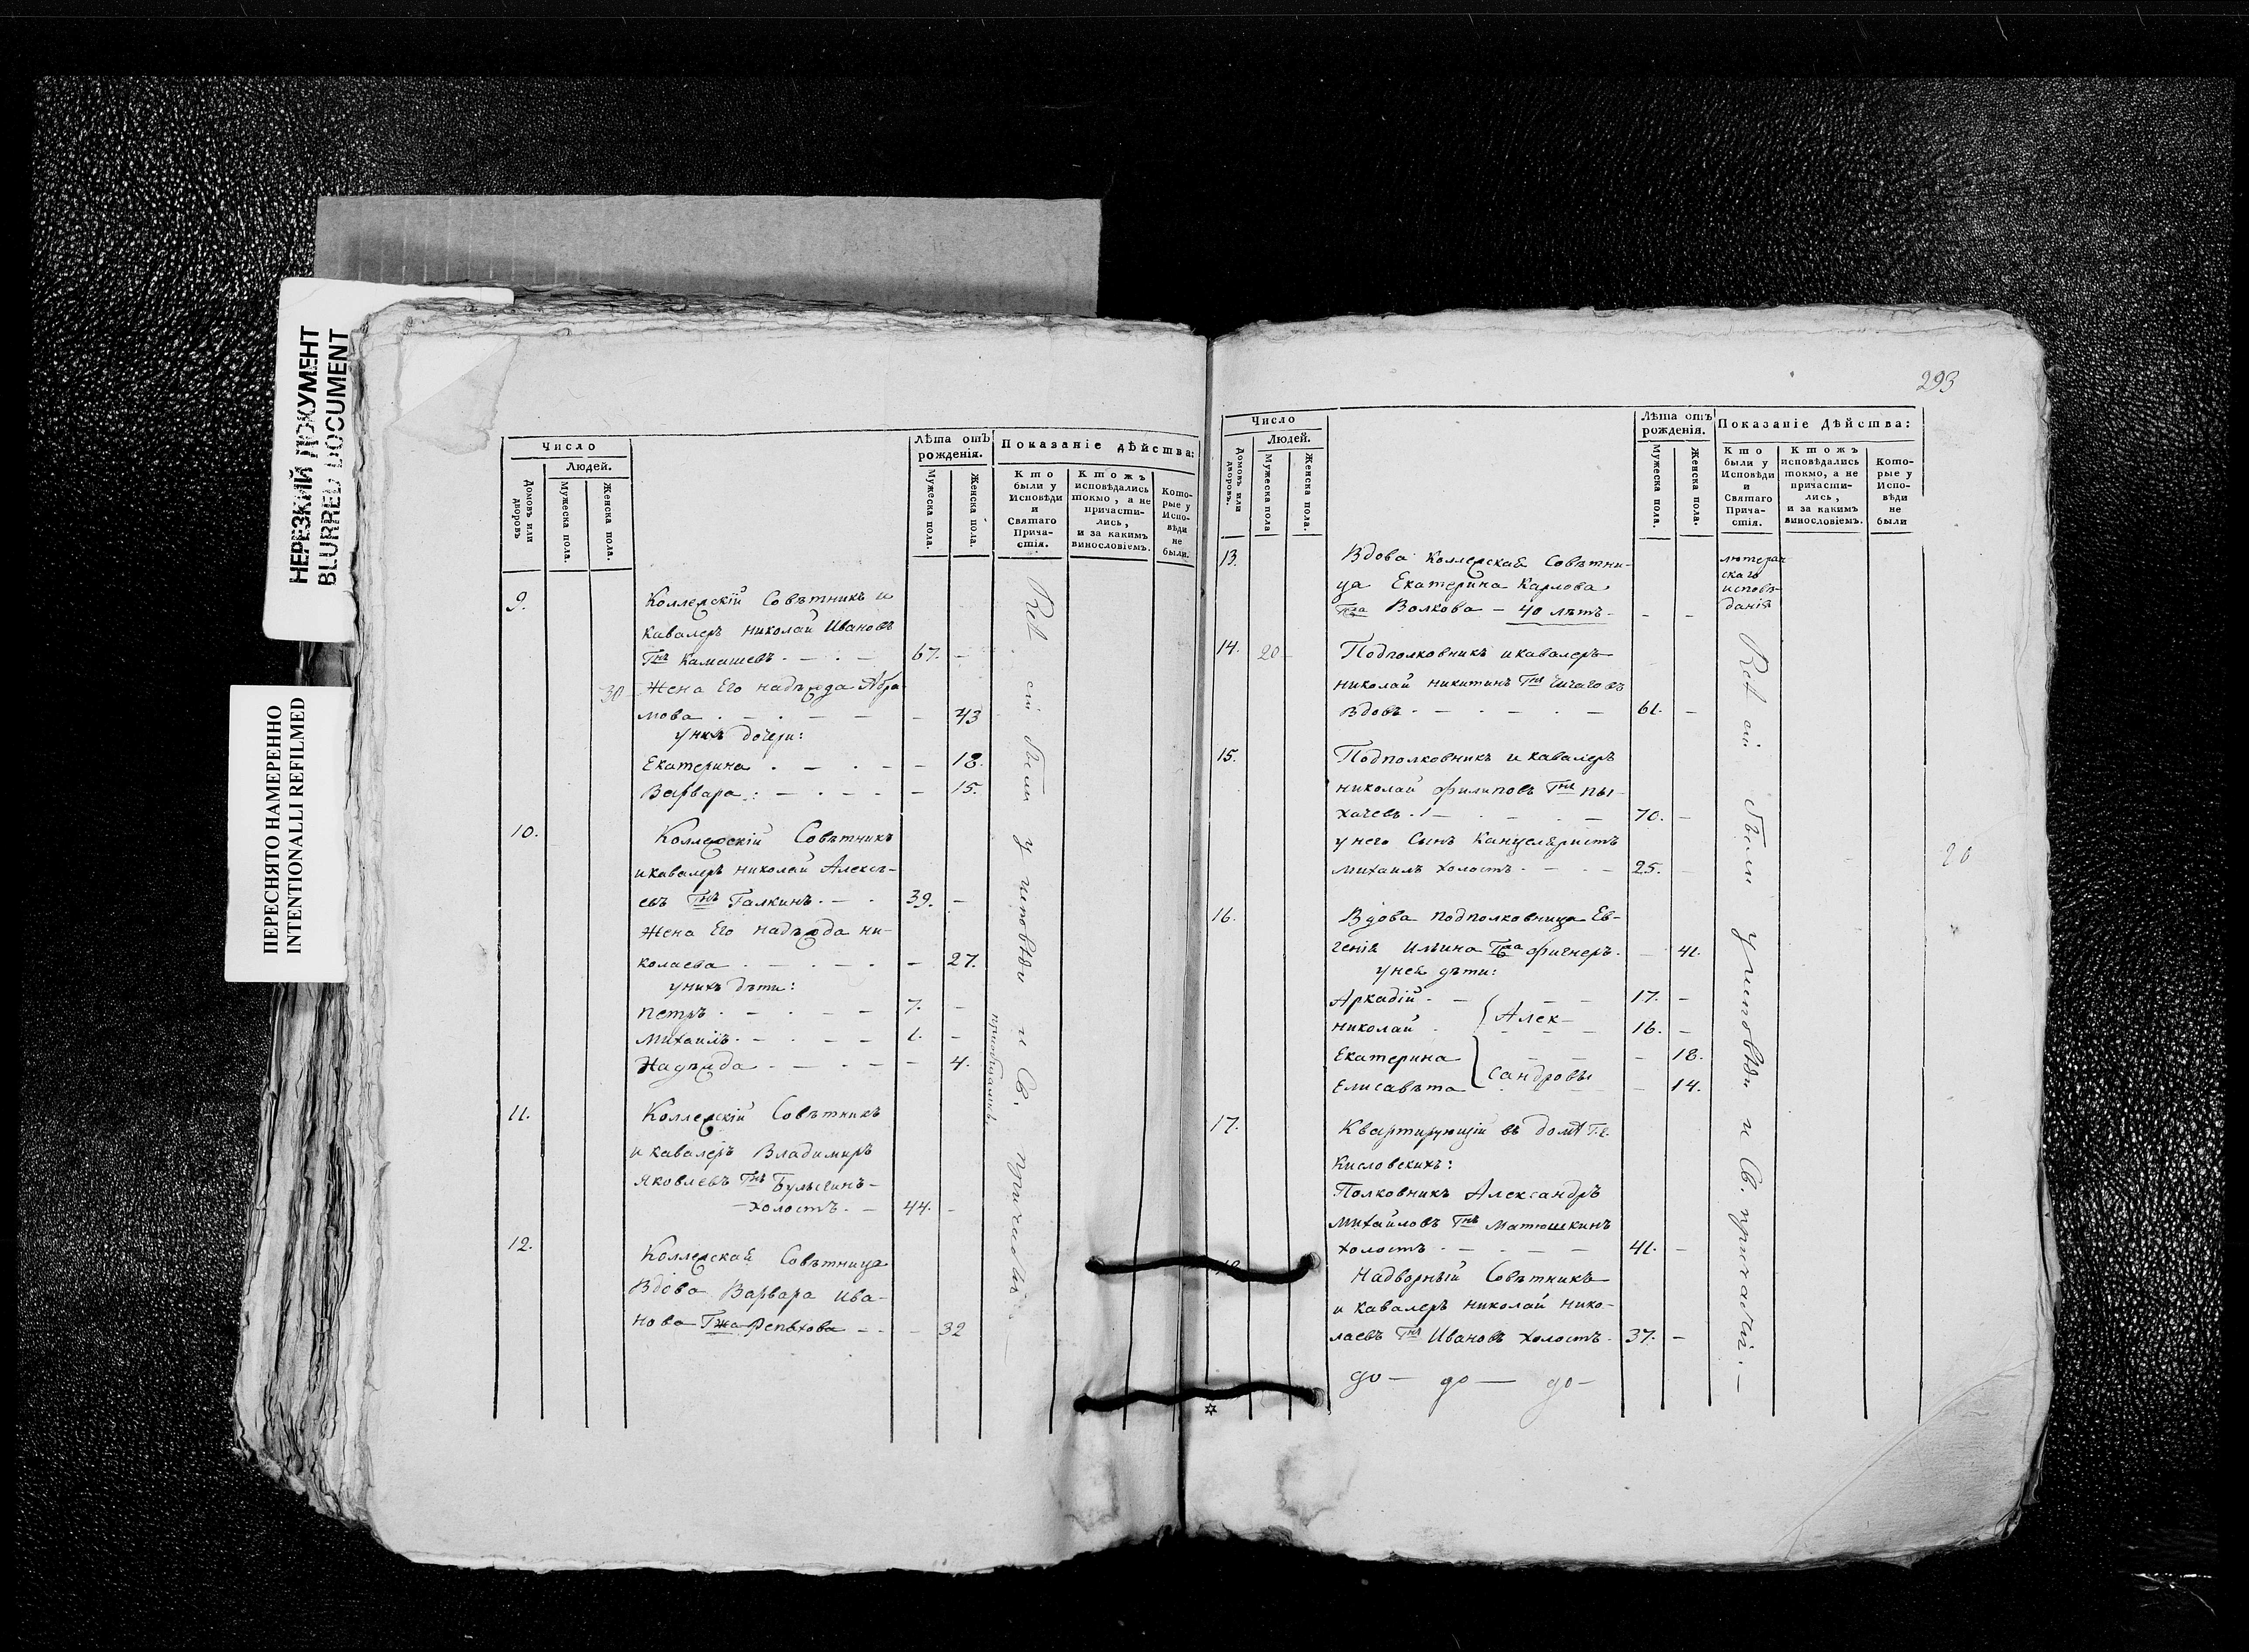 НЕРЕЗКИЙ ДОКУМЕНТ
BLURRED DOCUMENT
ПЕРЕСНЯТО НАМЕРЕННО
INTENTIONALLI REFILMED
Число
Людей.
Домовъ или дворовъ
Мужеска пола.
Женска пола.
Лѣта отъ рожденія.
Мужеска пола.
Женска пола.
Показаніе дѣйства:
Кто были у Исповѣди и Святаго Причастія.
Ктожъ исповѣдались токмо, а не причастились, и за какимъ винословіемъ.
Которые у Исповѣди не были.
9. Коллежскій Совѣтникъ и
кавалеръ Николай Ивановъ
Гнъ Камашевъ 67. –
30 Жена Его Надѣжда Абра
мова – 43
у нихъ дочери:
Екатерина – 18.
Варвара – 15.
10. Коллежскій Совѣтникъ
и кавалеръ Николай Алексѣ-
евъ Гнъ Галкинъ 39. –
Жена Его Надѣжда Ни-
колаева – 27.
у нихъ дѣти:
Петръ 7. –
Михаилъ 1. –
Надѣжда – 4.
11. Коллежскій Совѣтникъ
и кавалеръ Владимиръ
Яковлевъ Гнъ Булыгинъ –
холостъ 44. –
12. Коллежская Совѣтница
Вдова Варвара Ива-
нова Гжа Репьхова – 32
и Св.
293
Число
Людей.
Домовъ или дворовъ.
Мужеска пола
Женска пола.
Лѣта отъ рожденія.
Мужеска пола.
Женска пола.
Показаніе Дѣйства:
Кто были у Исповѣди и Святаго Причастія.
Ктожъ исповѣдались токмо, а не причастились, и за какимъ винословіемъ.
Которые у Исповѣди не были
13. Вдова Коллежская Совѣтни-
ца Екатерина Карлова
Гжа Волкова – 40 лѣтъ – – –
лютеран
скаго
исповѣ-
данія
14. 20 Подполковникъ и кавалеръ
Николай Никитинъ Гнъ Чичаговъ
вдовъ 61. –
15. Подполковникъ и кавалеръ
Николай Филиповъ Гнъ Пы-
хачевъ 70. –
у него Сынъ Канцеляристъ
Михаилъ холостъ 25. –
20
16. Вдова подполковница Ев-
генія Ильина Гжа Фигнеръ – 41.
у нея дѣти:
Аркадій 17. –
Николай 16. –
Екатерина – 18.
Елисавѣта – 14.
Алек-
сандровы
17. Квартирующій въ домѣ Г.г.
Кисловскихъ:
Полковникъ Александръ
Михайловъ Гнъ Матюшкинъ
холостъ 41. –
Надворный Совѣтникъ
и кавалеръ Николай Нико-
лаевъ Гнъ Ивановъ холостъ 37. –
и Св.